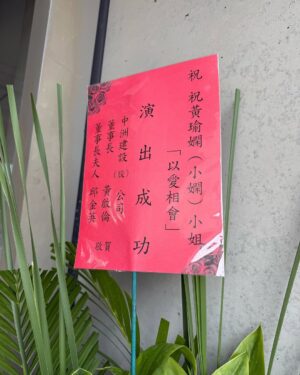 祝 祝黃瑜嫻（小嫻）小姐
「以愛相會」
演出成功
中洲建設（股）公司
董事長 黃啟倫
董事長夫人 邱金英 敬賀